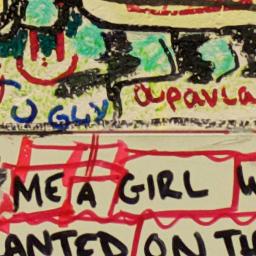 UGLY apavla
ME A GIRL W
ANTED ON TH